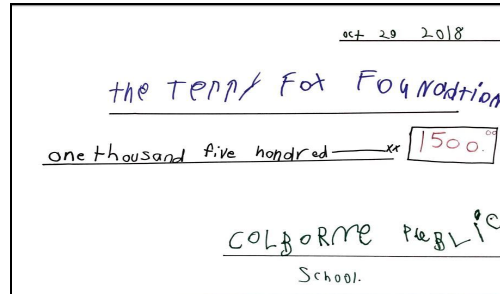 oct 29 2018
the Terry Fox Foundation
one thousand five hondred xx 1500.00
COLBORNE PUBLIC
School.